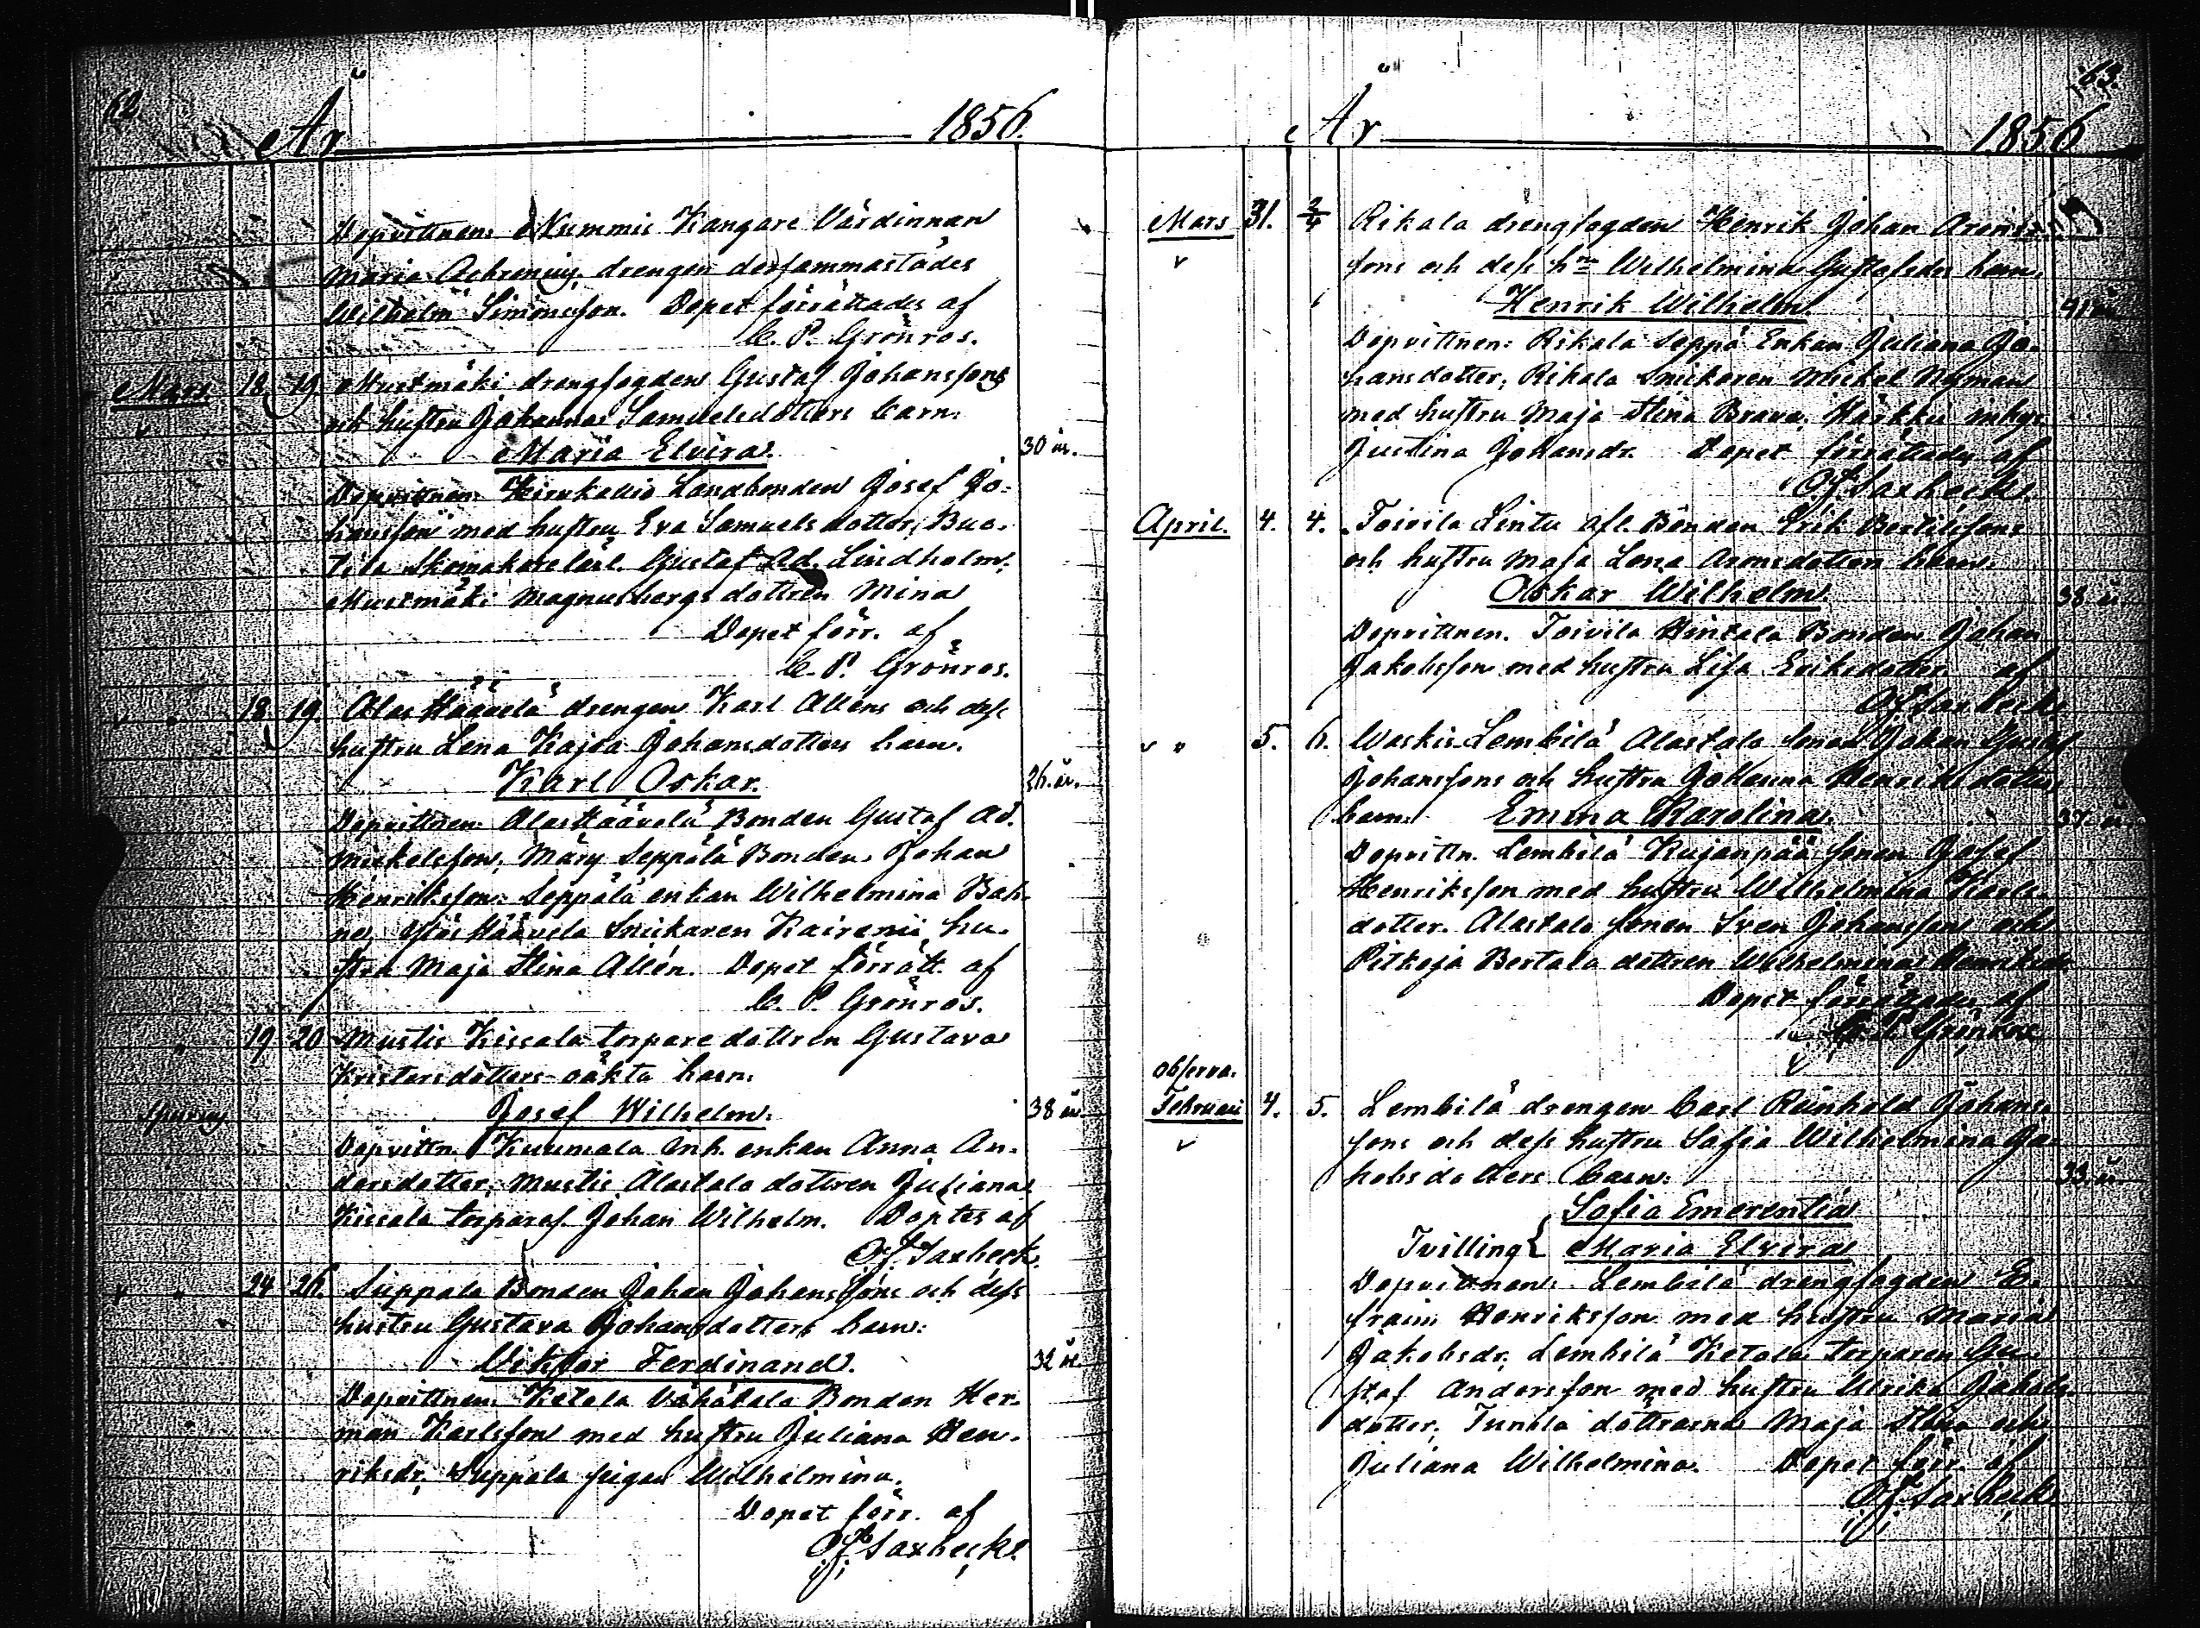 62
År 1856.
Dopvittnen: Nummis Kangare Värdinnan
Maria, drengen dersammastädes
Wilhelm Simonsson. Dopet förrättades af
C. P. Grönros.
Mars. 18 19 Mustmäki drengfogden Gustaf Johanssons
v och hustru Johanna Samuelsdotters barn:
Maria Elvira. 30 år.
Dopvittnen: Landbonden Josef Jo-
hansson med hustru Eva Samuelsdotter,
Skomakarelärl. Gustaf Ad. Lindholm,
Mustmäki Magnusbergs dottren Mina
Dopet förr. af
C. P. Grönros.
v " 18 19 Alas Häävelä drengen Karl Alléns och dess
hustru Lena Kajsa Johansdotters barn.
Karl Oskar. 26 år.
Dopvittnen: Alas Häävelä Bonden Gustaf Ad.
Mickelsson, Märy Seppälä Bonden Johan
Henriksson, Seppälä enkan Wilhelmina
Häävelä Snickaren hu-
stru Maja Stina Allén. Dopet förrätt. af
C. P. Grönros.
" 19 20 Mustis Kissala torpare dottren Gustava
Kristersdotters oäkta barn:
Josef Wilhelm. 38 år
Dopvittn. Kuumola Inh. enkan Anna An-
dersdotter, Mustis Alastalo dottren Juliana
Kissala torpares. Johan Wilhelm. Döptes af
Of. Saxbeck.
v " 24 26 Suppala Bonden Johan Johanssons och dess
hustru Gustava Johansdotters barn:
Viktor Ferdinand. 32 år
Dopvittnen. Ketola Vähätalo Bonden Her-
man Karlsson med hustru Juliana Hen-
riksdr, Suppala pigan Wilhelmina.
Dopet förr. af
Of. Saxbeck.
63.
År 1856
Mars 31. 2/4 Rikala drengfogden Henrik Johan
v sons och dess hru Wilhelmina Gustafsdrs barn.
Henrik Wilhelm. 41 år
Dopvittnen: Rikala Seppä Enkan Juliana Jo-
hansdotter, Rikala Snickaren Mickel Nyman
med hustru Maja Stina Brava, Härkki inhys
Justina Johansdr. Dopet förrättades af
Of. Saxbeck.
April. 4. 4. Toivila Lintu afl. Bonden Erik Bertilssons
och hustru Maja Lena Aronsdotters barn.
Oskar Wilhelm. 38 år
Dopvittnen. Toivila Hintala Bonden Johan
Jakobsson med hustru Lisa Eriksdotter. af
Of. Saxbeck.
v " 5. 6. Waskis Lembilä Alastalo sonen Johan Gustaf
Johanssons och hustru Johanna Henriksdotters
barn. Emma Karolina. 37. år
Dopvittn. Lembilä Kujanpää sonen Josef
Henriksson med hustru Wilhelmina Karls-
dotter. Alastalo sonen Sven Johansson och
Pitkoja Bertala dottren Wilhelmina
Dopet förrättades af
C. P. Grönros
observ.
Februari 4. 5. Lembilä drengen Carl Reinhold Johans-
v sons och dess hustru Sofia Wilhelmina Ja-
kobsdotters barn: 33 år
Sofia Emerentia
Tvilling { Maria Elvira
Dopvittnen: Lembilä drengfogden E-
fraim Henriksson med hustru Maria
Jakobsdr, Lembilä Ketola torparen Gu-
staf Andersson med hustru Ulrika Jakobs-
dotter, Tunola döttrarna Maja Stina och
Juliana Wilhelmina. Dopet förr. af
Of. Saxbeck